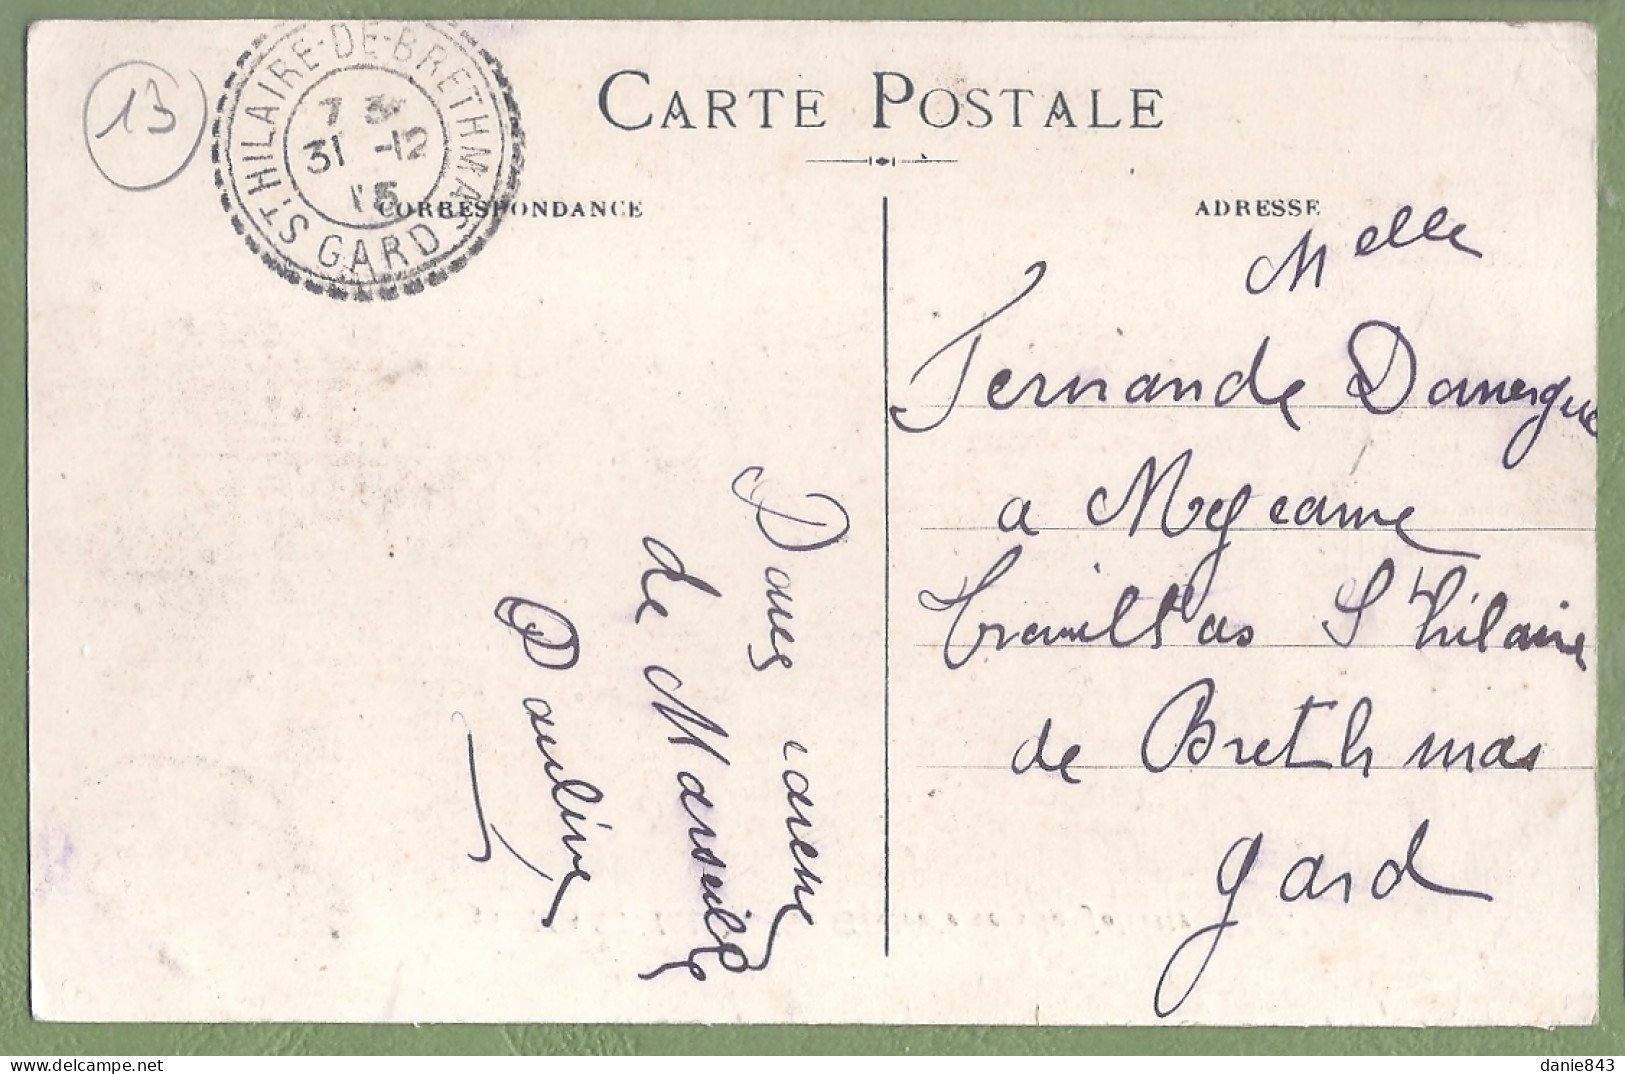 13
ST HILAIRE-DE-BRETHMAS
7 3
31 -12
15
GARD
CARTE POSTALE
CORRESPONDANCE
ADRESSE
Melle
Fernande Domergue
a Mejeanne
Trouillas St hilaire
de Brethmas
gard
de Marseille
Pauline
danie843